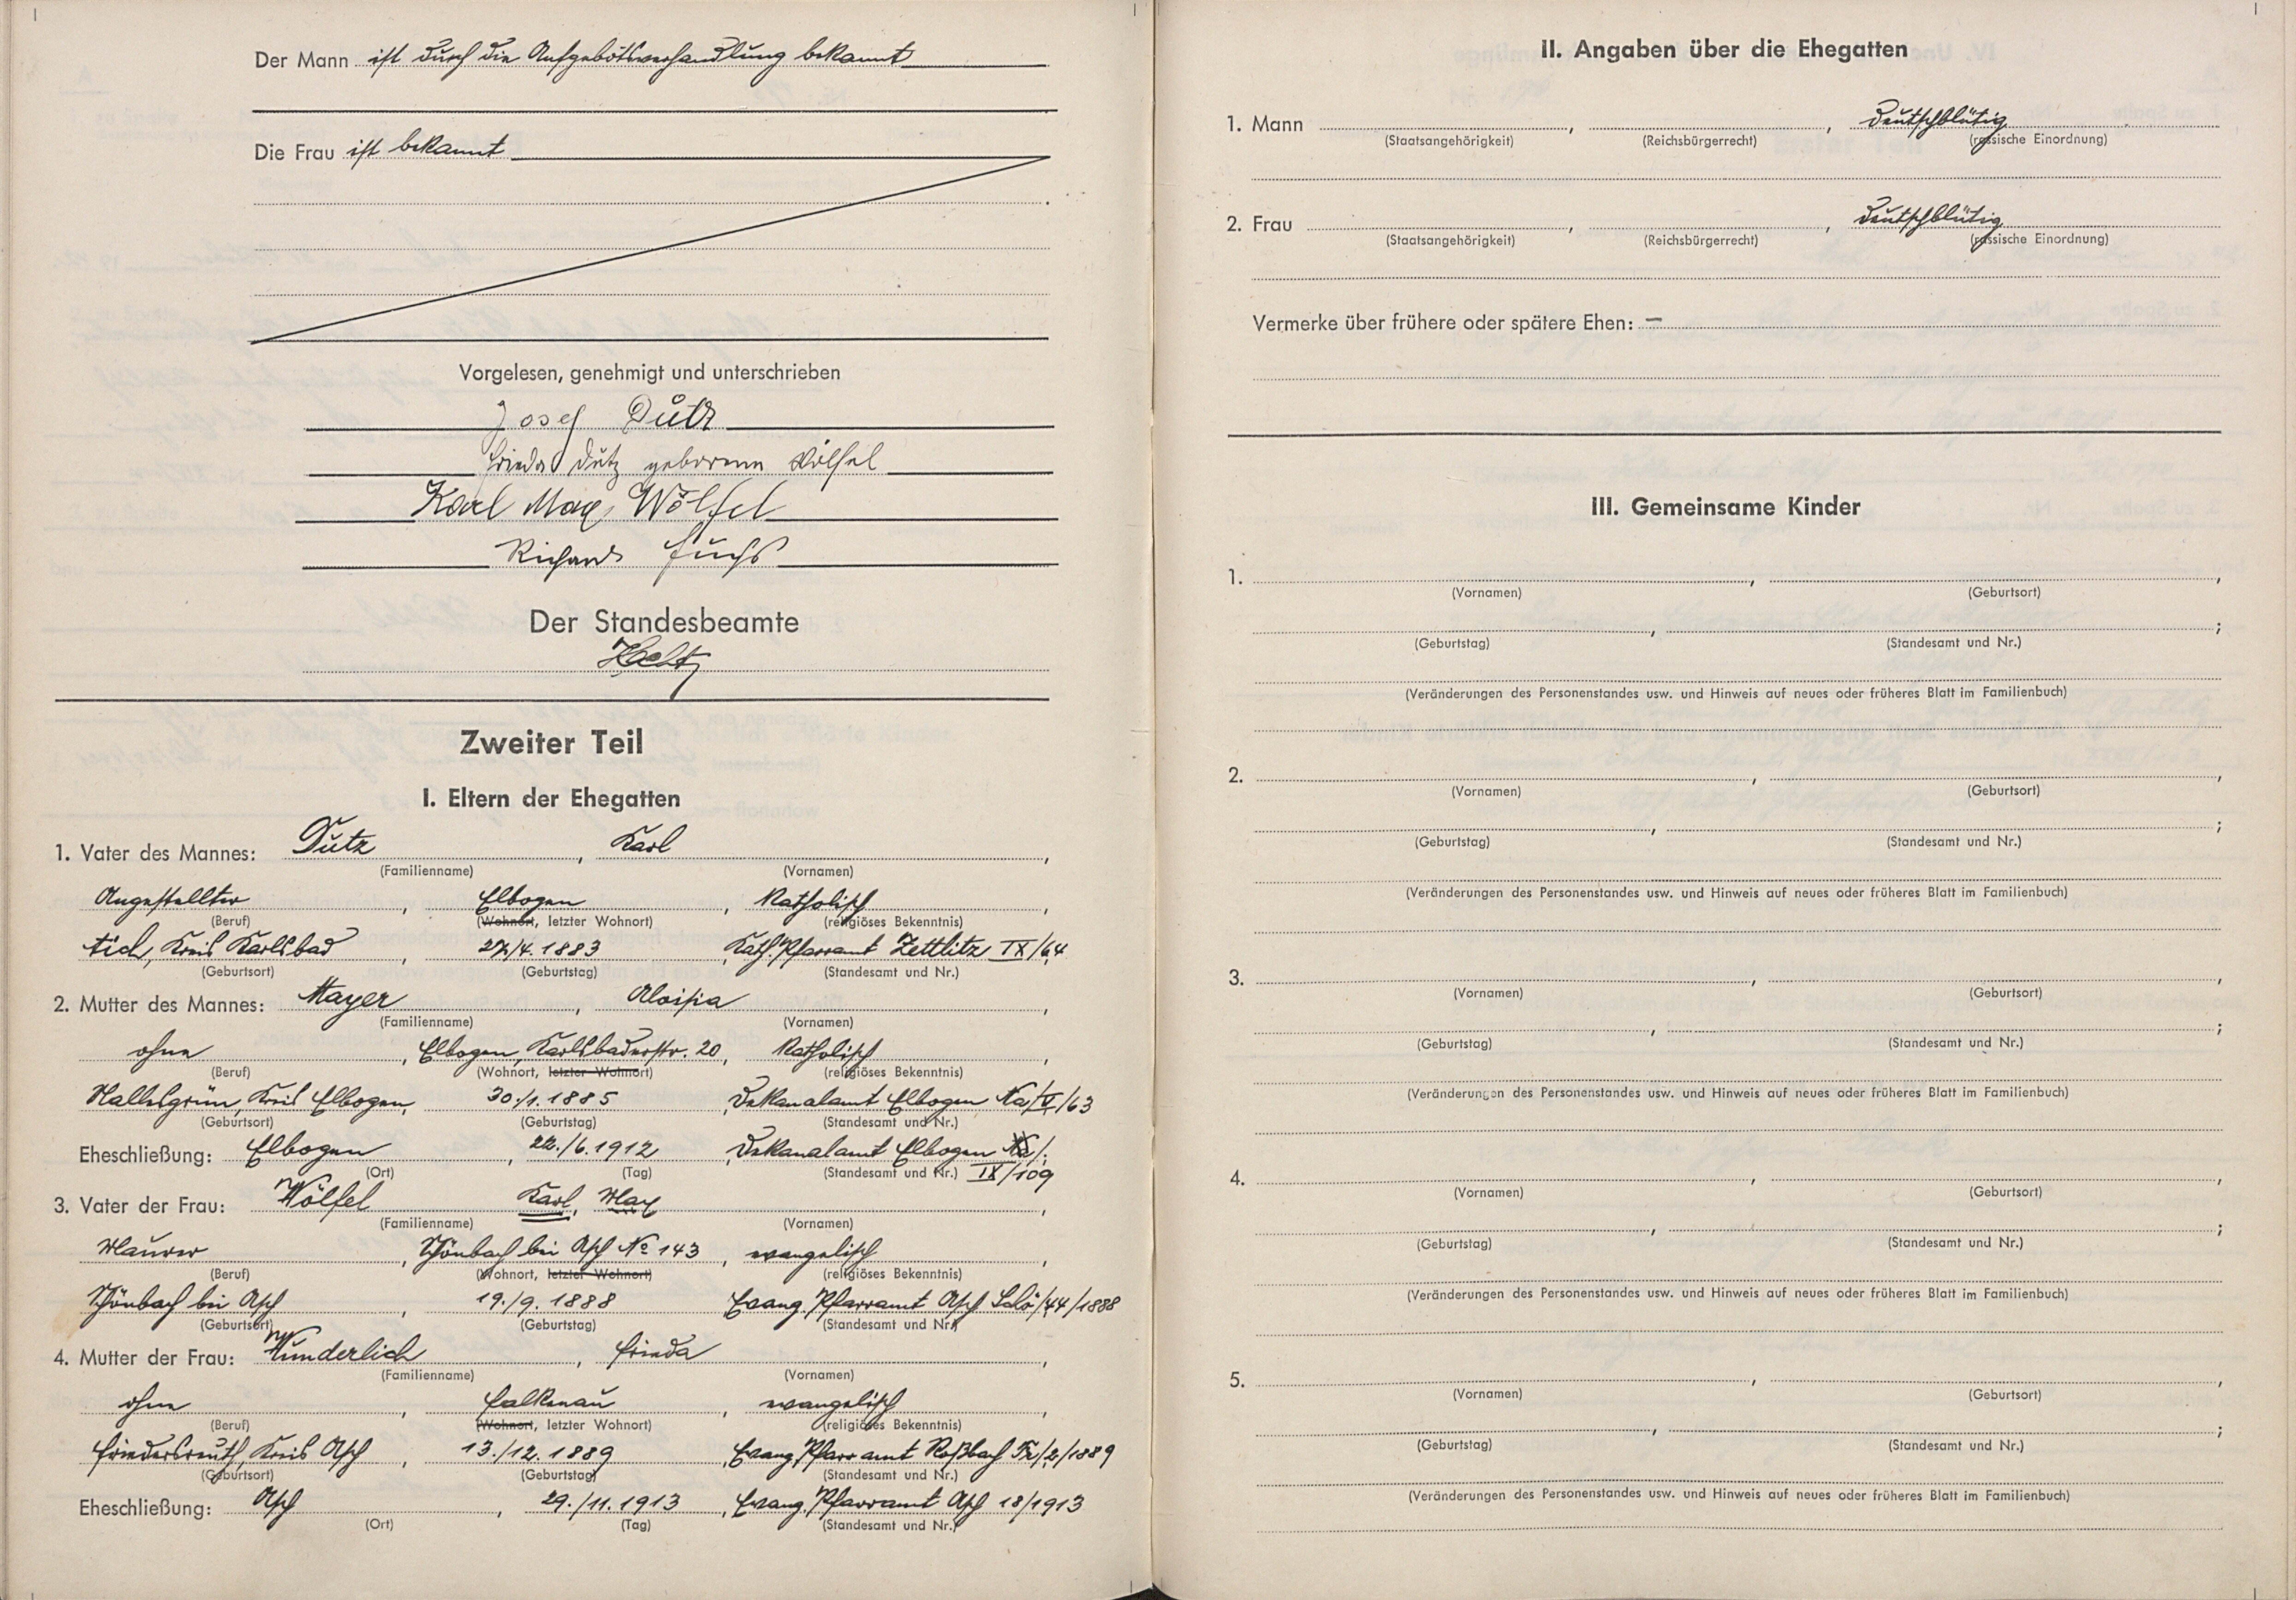 Der Mann ist durch die Aufgebotsverhandlung bekannt
Die Frau ist bekannt
Vorgelesen, genehmigt und unterschrieben
Josef Dütz
Frieda Dütz geborene Wölfel
Karl Max Wölfel
Richard Fuchs
Der Standesbeamte
Zweiter Teil
I. Eltern der Ehegatten
1. Vater des Mannes: Dütz, Karl,
(Familienname) (Vornamen)
Angestellter, Elbogen, katholisch,
(Beruf) (Wohnort, letzter Wohnort) (religiöses Bekenntnis)
Tich, Kreis Karlsbad, 27./4. 1883, Kath. Pfarramt Zettlitz IX/64
(Geburtsort) (Geburtstag) (Standesamt und Nr.)
2. Mutter des Mannes: Mayer, Aloisia,
(Familienname) (Vornamen)
ohne, Elbogen, Karlsbaderstr. 20, katholisch,
(Beruf) (Wohnort, letzter Wohnort) (religiöses Bekenntnis)
Kreis Elbogen, 30./1. 1885, Dekanalamt Elbogen Na/V/63
(Geburtsort) (Geburtstag) (Standesamt und Nr.)
Eheschließung: Elbogen, 22./6. 1912, Dekanalamt Elbogen
(Ort) (Tag) (Standesamt und Nr.) IX/109
3. Vater der Frau: Wölfel Karl, Max,
(Familienname) (Vornamen)
Maurer, Schönbach bei Asch No 143, evangelisch,
(Beruf) (Wohnort, letzter Wohnort) (religiöses Bekenntnis)
Schönbach bei Asch, 19./9. 1888 Evang. Pfarramt Asch Schö/44/1888
(Geburtsort) (Geburtstag) (Standesamt und Nr.)
4. Mutter der Frau: Wunderlich, Frieda,
(Familienname) (Vornamen)
ohne, Falkenau, evangelisch,
(Beruf) (Wohnort, letzter Wohnort) (religiöses Bekenntnis)
Friedersreuth, Kreis Asch, 13./12. 1889, Evang. Pfarramt Roßbach Fr/2/1889
(Geburtsort) (Geburtstag) (Standesamt und Nr.)
Eheschließung: Asch, 29./11. 1913, Evang. Pfarramt Asch 18/1913
(Ort) (Tag) (Standesamt und Nr.)
II. Angaben über die Ehegatten
1. Mann , , deutschblütig
(Staatsangehörigkeit) (Reichsbürgerrecht) (rassische Einordnung)
2. Frau , , deutschblütig
(Staatsangehörigkeit) (Reichsbürgerrecht) (rassische Einordnung)
Vermerke über frühere oder spätere Ehen: –
III. Gemeinsame Kinder
1. , ,
(Vornamen) (Geburtsort)
, ;
(Geburtstag) (Standesamt und Nr.)
(Veränderungen des Personenstandes usw. und Hinweis auf neues oder früheres Blatt im Familienbuch)
2. , ,
(Vornamen) (Geburtsort)
, ;
(Geburtstag) (Standesamt und Nr.)
(Veränderungen des Personenstandes usw. und Hinweis auf neues oder früheres Blatt im Familienbuch)
3. , ,
(Vornamen) (Geburtsort)
, ;
(Geburtstag) (Standesamt und Nr.)
(Veränderungen des Personenstandes usw. und Hinweis auf neues oder früheres Blatt im Familienbuch)
4. , ,
(Vornamen) (Geburtsort)
, ;
(Geburtstag) (Standesamt und Nr.)
(Veränderungen des Personenstandes usw. und Hinweis auf neues oder früheres Blatt im Familienbuch)
5. , ,
(Vornamen) (Geburtsort)
, ;
(Geburtstag) (Standesamt und Nr.)
(Veränderungen des Personenstandes usw. und Hinweis auf neues oder früheres Blatt im Familienbuch)